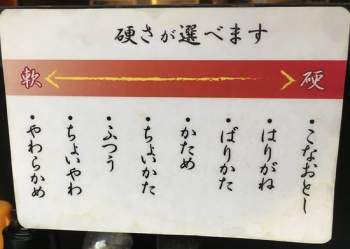 硬さが選べます
軟
硬
・こなおとし
・はりがね
・ばりかた
・かため
・ちょいかた
・ふつう
・ちょいやわ
・やわらかめ